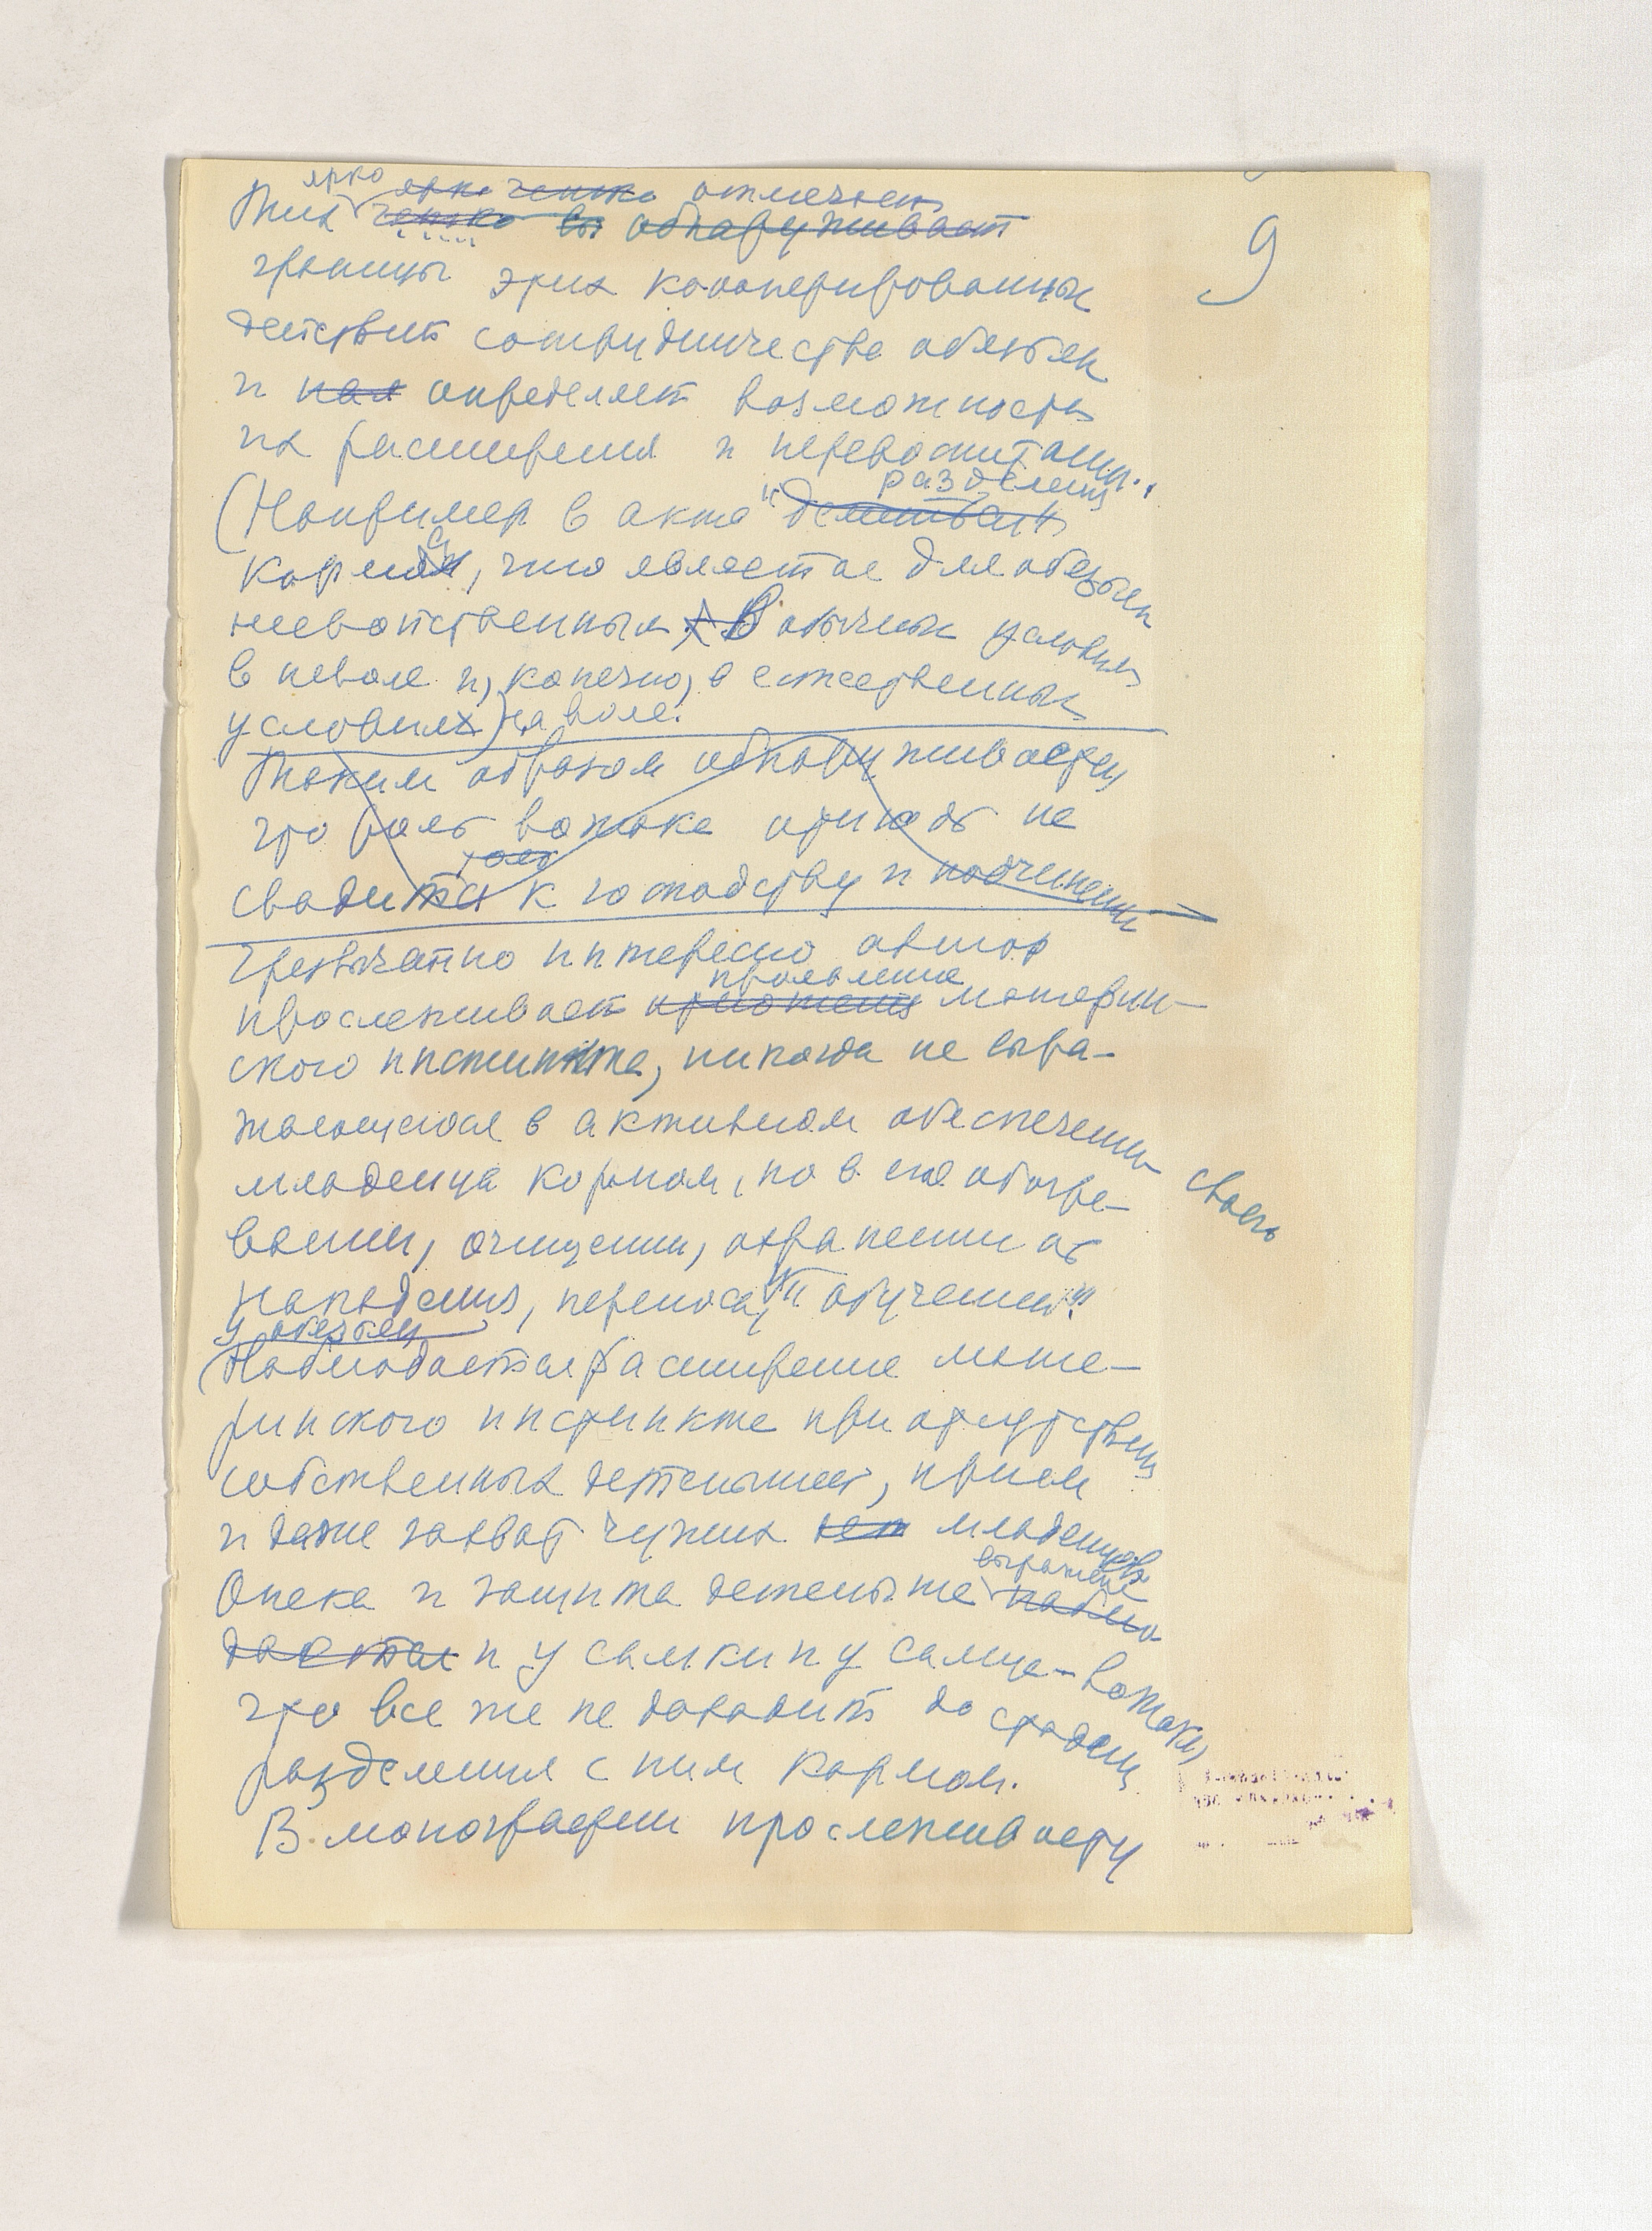 9
ярко ярко четко отмечает
Тих четко вы обнаруживает
границы этих кооперированных
действий сотрудничества обезьян
и определяет возможность
их расширения и перевоспитания.
разделения
(Например в акте "
корма, что является для обезьян
несвойственным В обычных условиях
в неволе и, конечно, в естественных
условиях) на воле.
Таким образом обнаруживается,
что роль вожака отнюдь не
сводится к господству и подчинению
Чрезвычайно интересно автор
проявление
прослеживает материн-
ского инстинкта, никогда не выра-
жающегося в активном обеспечении своего
младенца кормом, но в его обогре-
вании, очищении, охранении от
нападения, переноса, "обучении".
у обезьян
(Наблюдается расширение мате-
ринского инстинкта при отсутствии
собственных детенышей, прием
и даже захват чужих младенцев
выражена
Опека и защита детеныша наблю
дается и у самки и у самца-вожака,
что все же не доходит до стадии
разделения с ним кормом.
В монографии прослежива